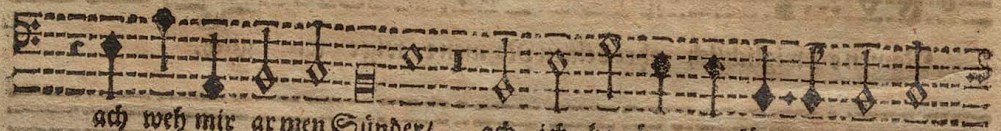 ach weh mir armen Sünder/ ach ich